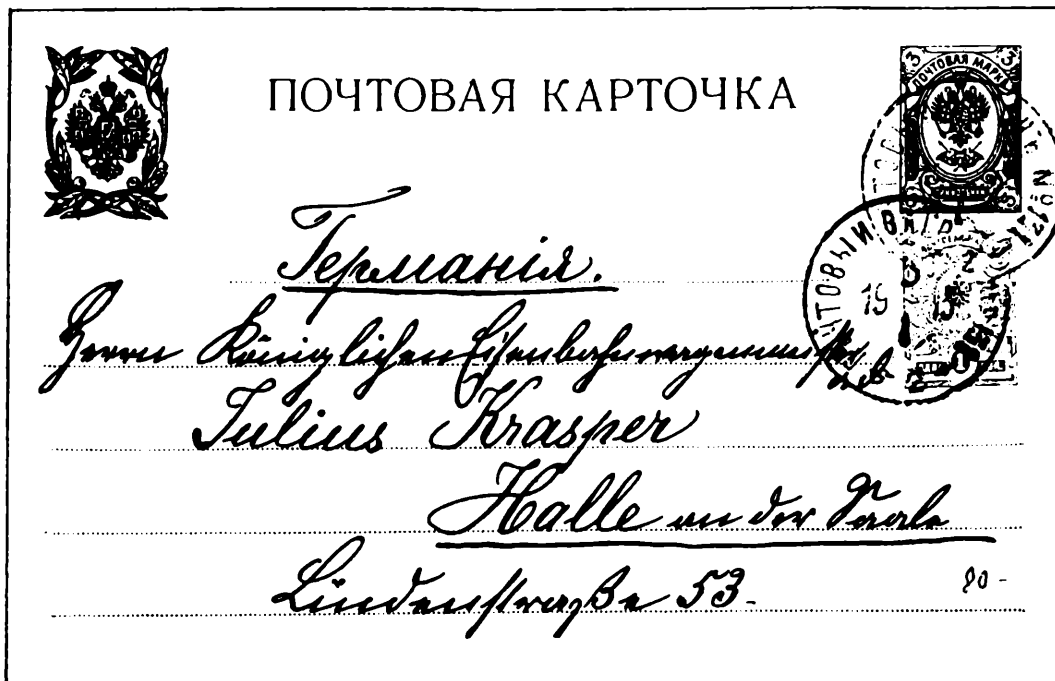 ПОЧТОВАЯ КАРТОЧКА
3 3
ПОЧТОВАЯ МАРК
ТОВЫЙ ВАГ
19 13
Германія.
Herrn Königlichen Eisenbahnwagenmeister
Julius Krasper
Halle an der Saale
Lindenstraße 53.
80-